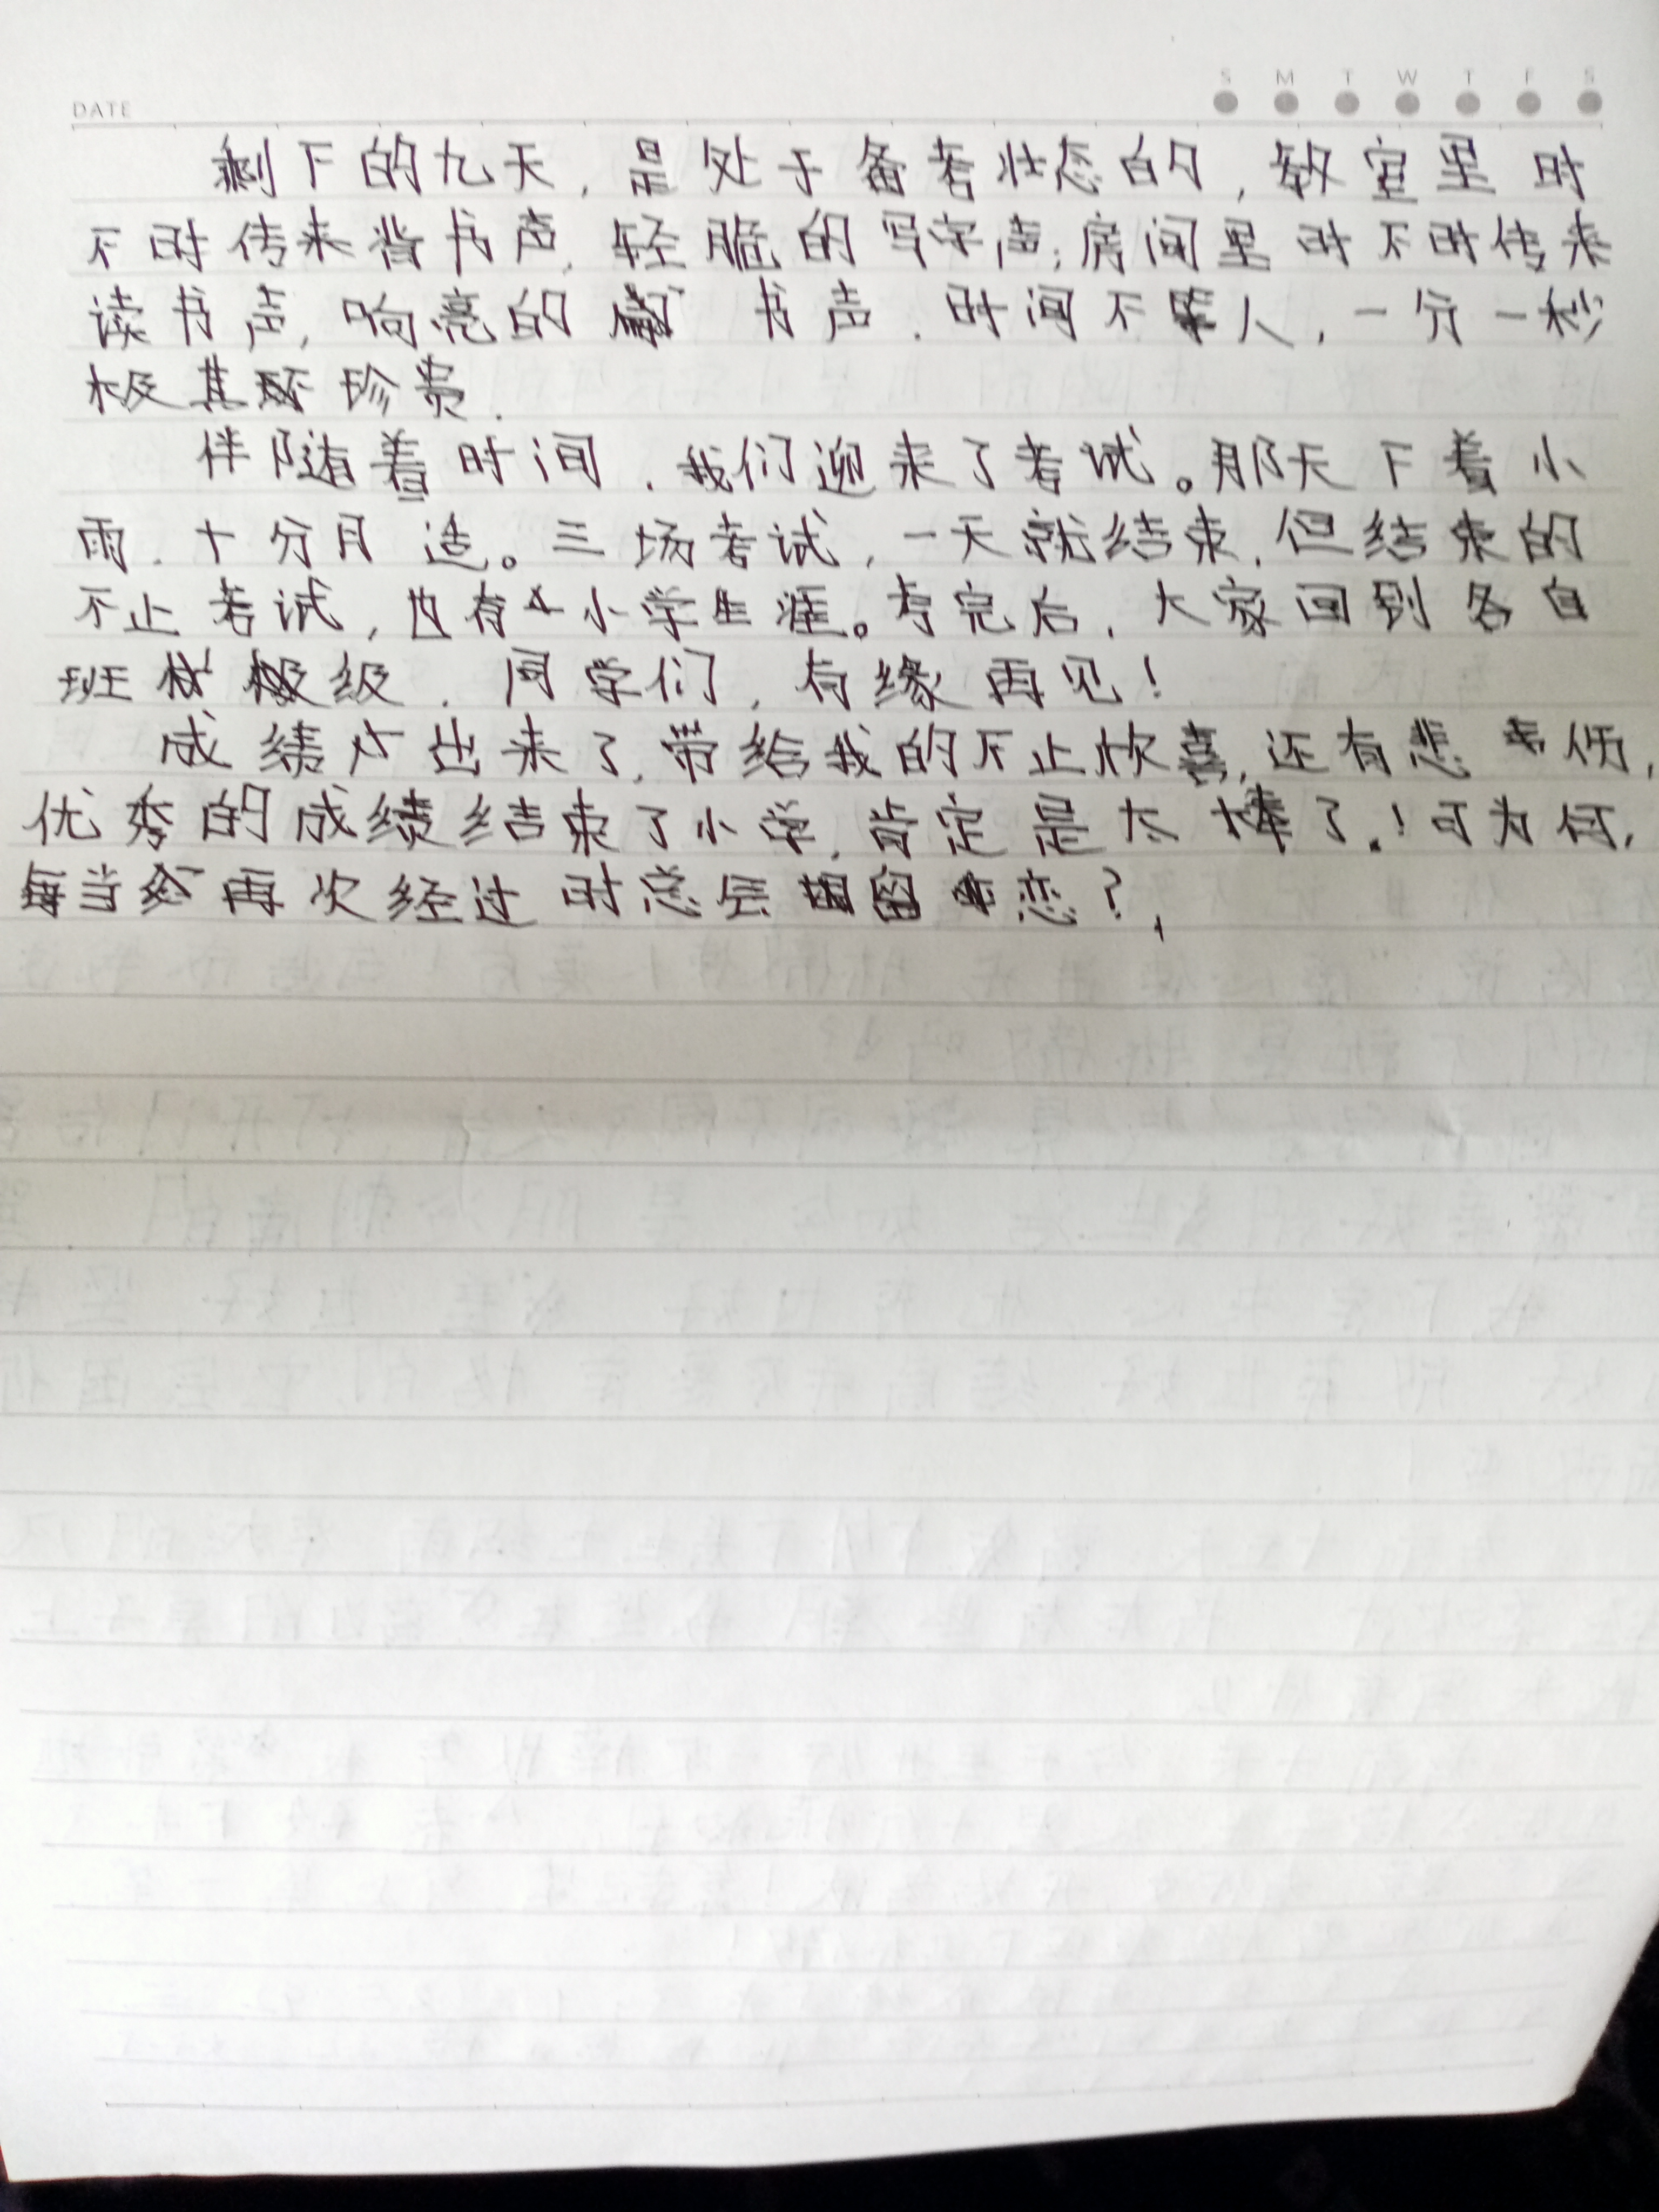 DATE
S M T W T F S
剩下的九天，是处于备考状态的，教室里时
不时传来背书声，轻脆的写字声；房间里时不时传来
读书声，响亮的 书声．时间不等人，一分一秒
极其珍贵．
伴随着时间．我们迎来了考试。那天下着小
雨．十分月 适。三场考试，一天就结束，但结束的
不止考试，也有小学生涯。考完后，大家回到各自
班级．同学们，有缘再见！
成绩出来了，带给我的不止欣喜，还有悲伤，
优秀的成绩结束了小学，肯定是太棒了！可为何，
每当再次经过时总会留恋？